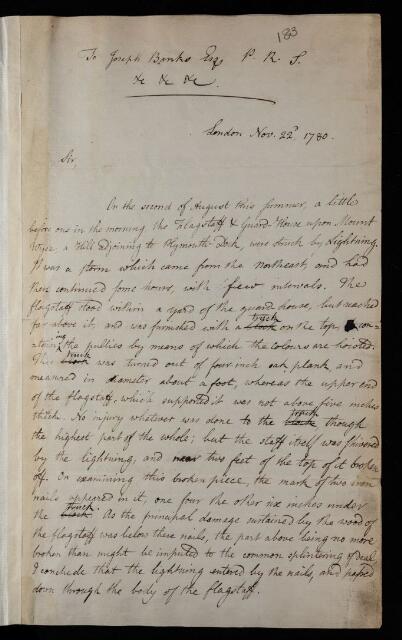 183
To Joseph Banks Esq P. R. S.
&c &c &c.
London Nov. 22d 1780.
Sir,
On the second of August this summer, a little
before one in the morning the Flagstaff & Guard-House upon Mount
Wise, a Hill adjoining to Plymouth-Dock, were struck by Lightning.
It was a storm which came from the northeast, and had
then continued some hours, with few intervals. The
flagstaff stood within a yard of the guard house, but reached
far above it, and was furnished with a block truck on the top, con=
=taining the pullies by means of which the colours are hoisted.
This block truck was turned out of four inch oak plank, and
measured in diameter about a foot, whereas the upper end
of the flagstaff, which supported it was not above five inches
thick. No injury whatever was done to the block truck though
the highest part of the whole; but the staff itself was shivered
by the lightning, and near two feet of the top of it broken
off. On examining this broken piece, the mark of two iron
nails appeared in it, one four the other six inches under
the block truck. As the principal damage sustained by the wood of
the flagstaff was below these nails, the part above being no more
broken than might be imputed to the common splintering of Deal
I conclude that the lightning entered by the nails, and passed
down through the body of the flagstaff.